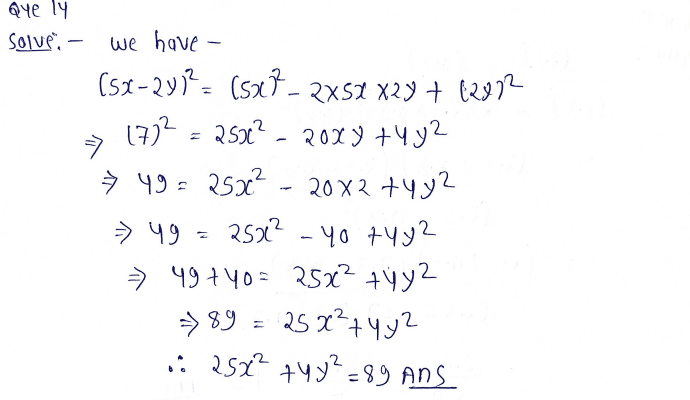 Que 14
Solve:- we have -
(5x-2y)² = (5x)² - 2×5x×2y + (2y)²
⇒ (7)² = 25x² - 20xy + 4y²
⇒ 49 = 25x² - 20×2 + 4y²
⇒ 49 = 25x² - 40 + 4y²
⇒ 49+40 = 25x² + 4y²
⇒ 89 = 25x² + 4y²
∴ 25x² + 4y² = 89 Ans